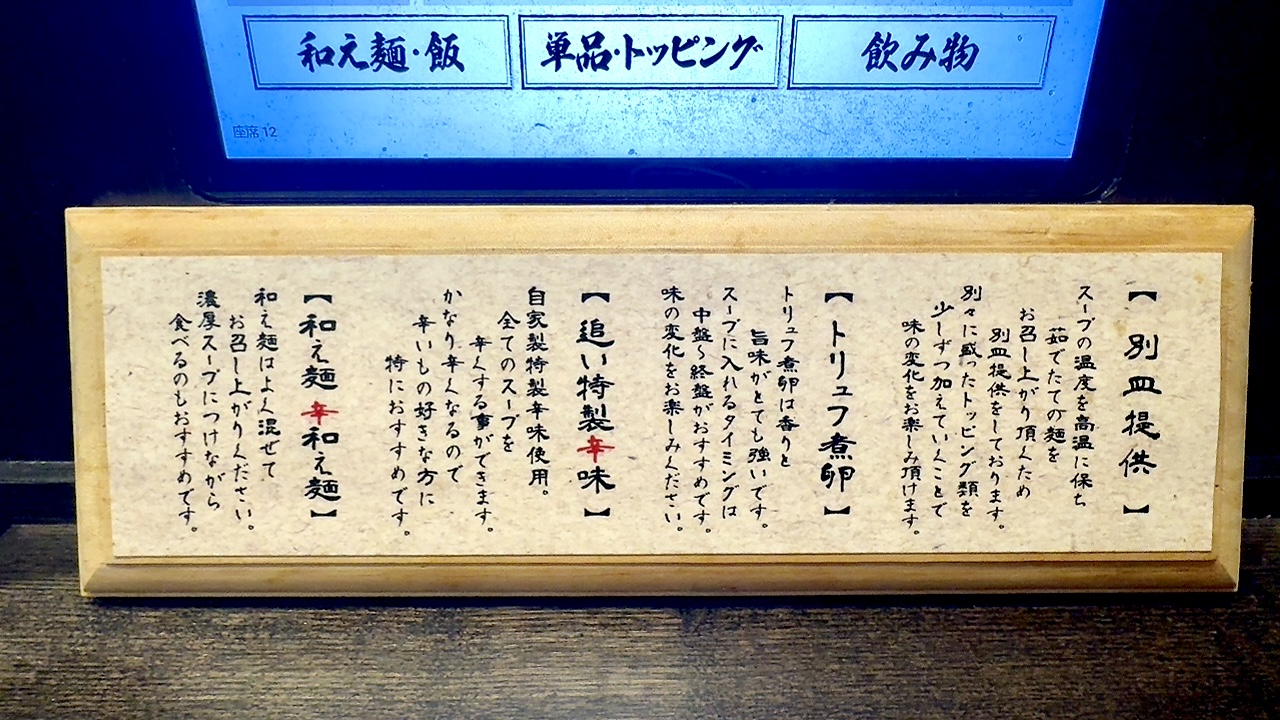 和え麺・飯
単品・トッピング
飲み物
座席 12
【別皿提供】
スープの温度を高温に保ち
茹でたての麺を
お召し上がり頂くため
別皿提供をしております。
別々に盛ったトッピング類を
少しずつ加えていくことで
味の変化をお楽しみ頂けます。
【トリュフ煮卵】
トリュフ煮卵は香りと
旨味がとても強いです。
スープに入れるタイミングは
中盤〜終盤がおすすめです。
味の変化をお楽しみください。
【追い特製辛味】
自家製特製辛味使用。
全てのスープを
辛くする事ができます。
かなり辛くなるので
辛いもの好きな方に
特におすすめです。
【和え麺 辛和え麺】
和え麺はよく混ぜて
お召し上がりください。
濃厚スープにつけながら
食べるのもおすすめです。